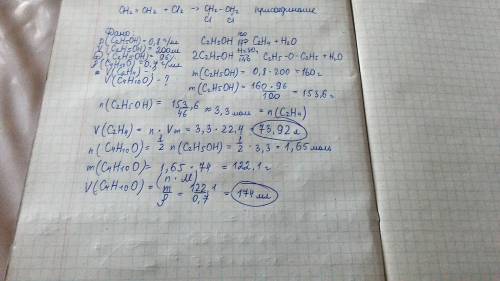 CH₂=CH₂ + Cl₂ → CH₂-CH₂ присоединение
Cl Cl
Дано:
ρ(C₂H₅OH)=0,8 г/мл
V(C₂H₅OH)=200мл
(C₂H₅OH)=96%
V(C₂H₄) - ?
V(C₄H₁₀O) - ?
C₂H₅OH → C₂H₄ + H₂O
2C₂H₅OH → C₂H₅-O-C₂H₅ + H₂O
m(C₂H₅OH) = 0,8·200 = 160г
m(C₂H₅OH) = 160·96 / 100 = 153,6г
n(C₂H₅OH) = 153,6 / 46 ≈ 3,3 моль = n(C₂H₄)
V(C₂H₄) = n · Vm = 3,3 · 22,4 = 73,92л
n(C₄H₁₀O) = 1/2 n(C₂H₅OH) = 1/2 · 3,3 = 1,65 моль
m(C₄H₁₀O) = 1,65 · 74 = 122,1г
(n · M)
V(C₄H₁₀O) = m/ρ = 122,1 / 0,7 = 174 мл